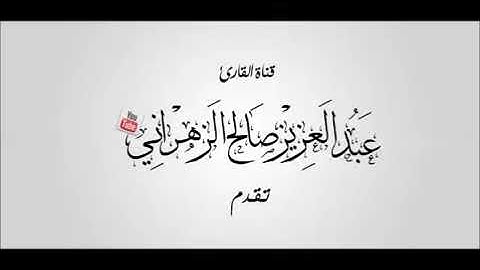 قناة القارئ
عَبْدُ العَزِيزِ صَالِح الزَهْرَانِي
تقدم
You Tube